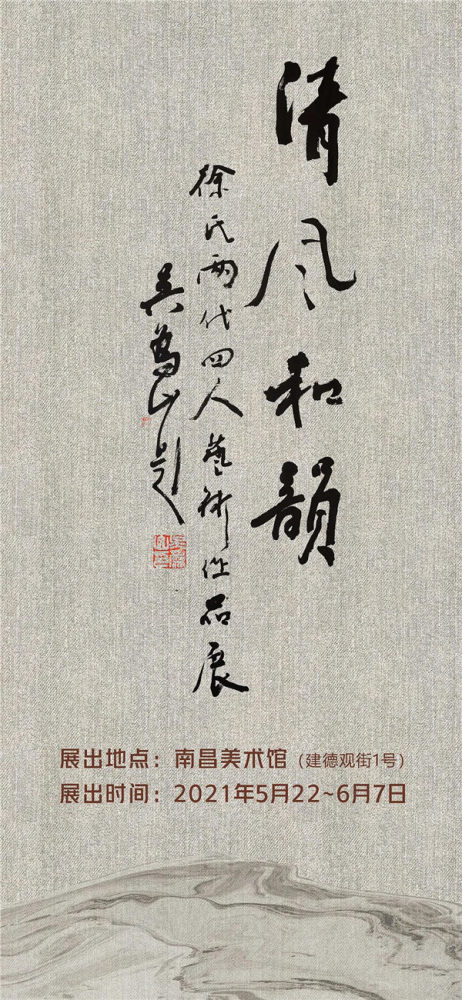 清风和韻
徐氏两代四人藝術作品展
吴為山题
展出地点：南昌美术馆（建德观街1号）
展出时间：2021年5月22~6月7日